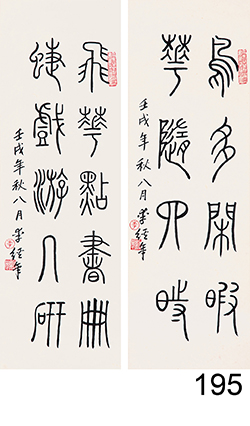 鳥多閑暇
華隨四時
壬戌年秋八月
飛華點書冊
蜨戲游人研
壬戌年秋八月
195